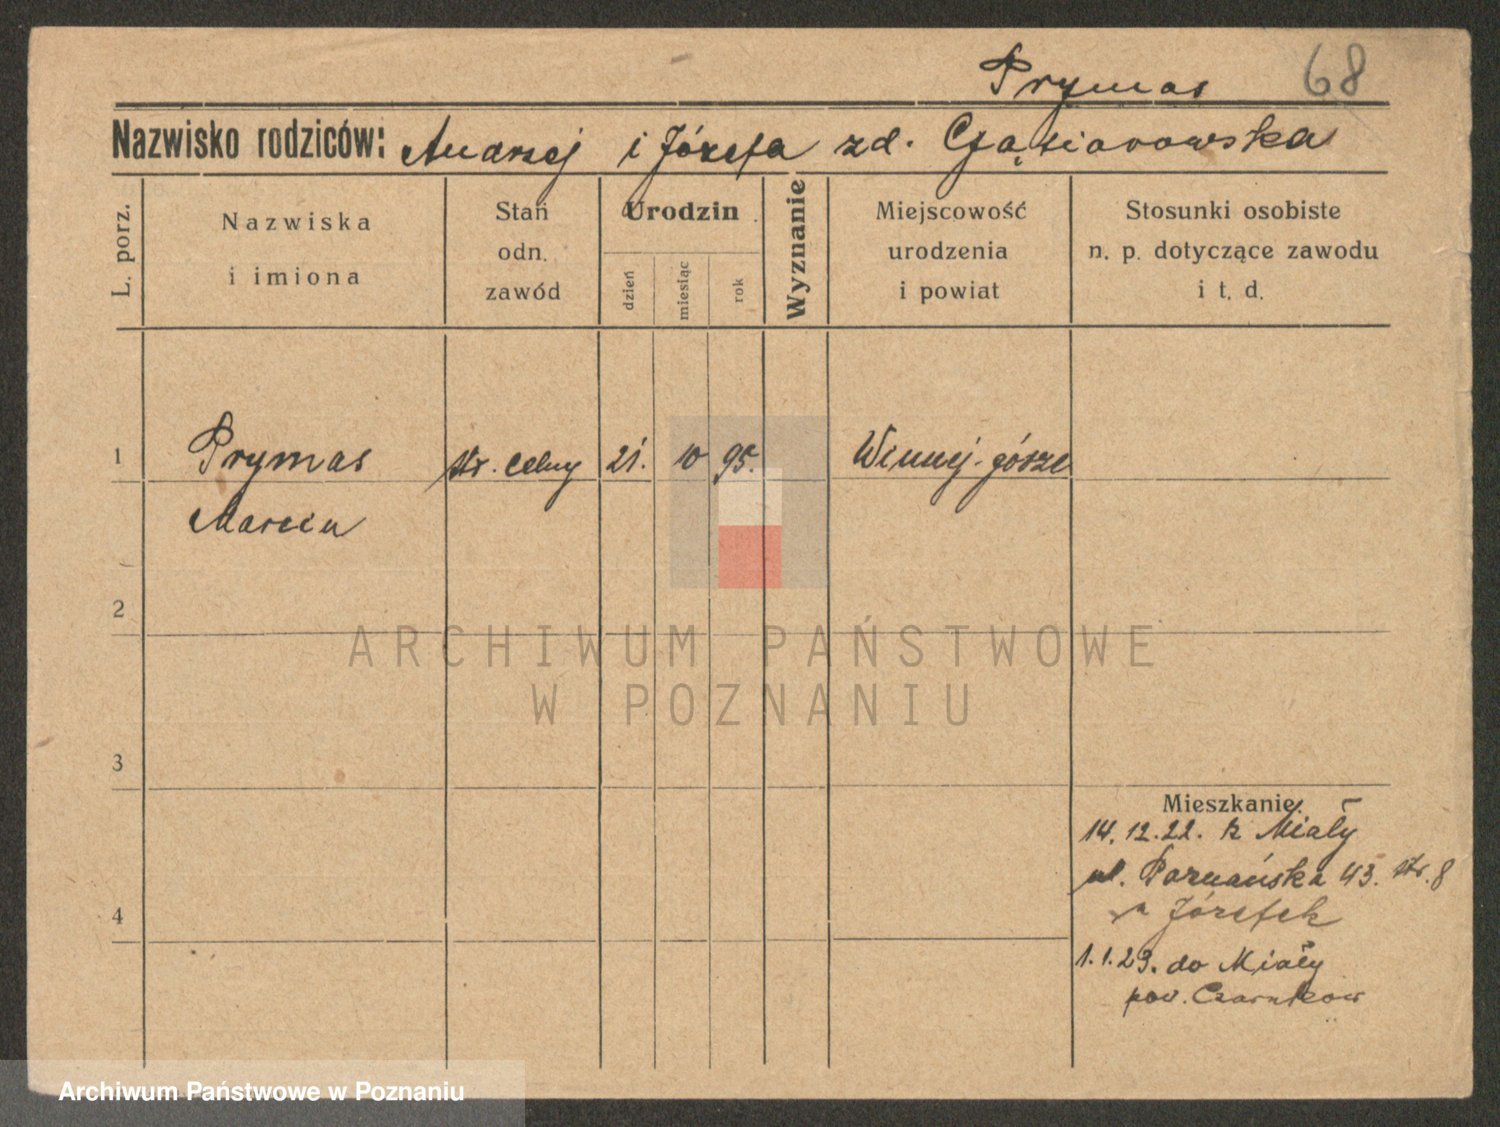 Prymas 68
Nazwisko rodziców: Andrzej i Józefa zd.
L. porz.
Nazwiska
i imiona
Stan
odn.
zawód
Urodzin
dzień
miesiąc
rok
Wyznanie
Miejscowość
urodzenia
i powiat
Stosunki osobiste
n. p. dotyczące zawodu
i t. d.
1 Prymas str. celny 21. 10 95. Winnej-górze
Marcin
2
ARCHIWUM PAŃSTWOWE
W POZNANIU
3
Mieszkanie:
14.12.22. z Miały
ul. Poznańska 43. str. 8
Józefek
4
1.1.23. do Miały
pow. Czarnkow
Archiwum Państwowe w Poznaniu